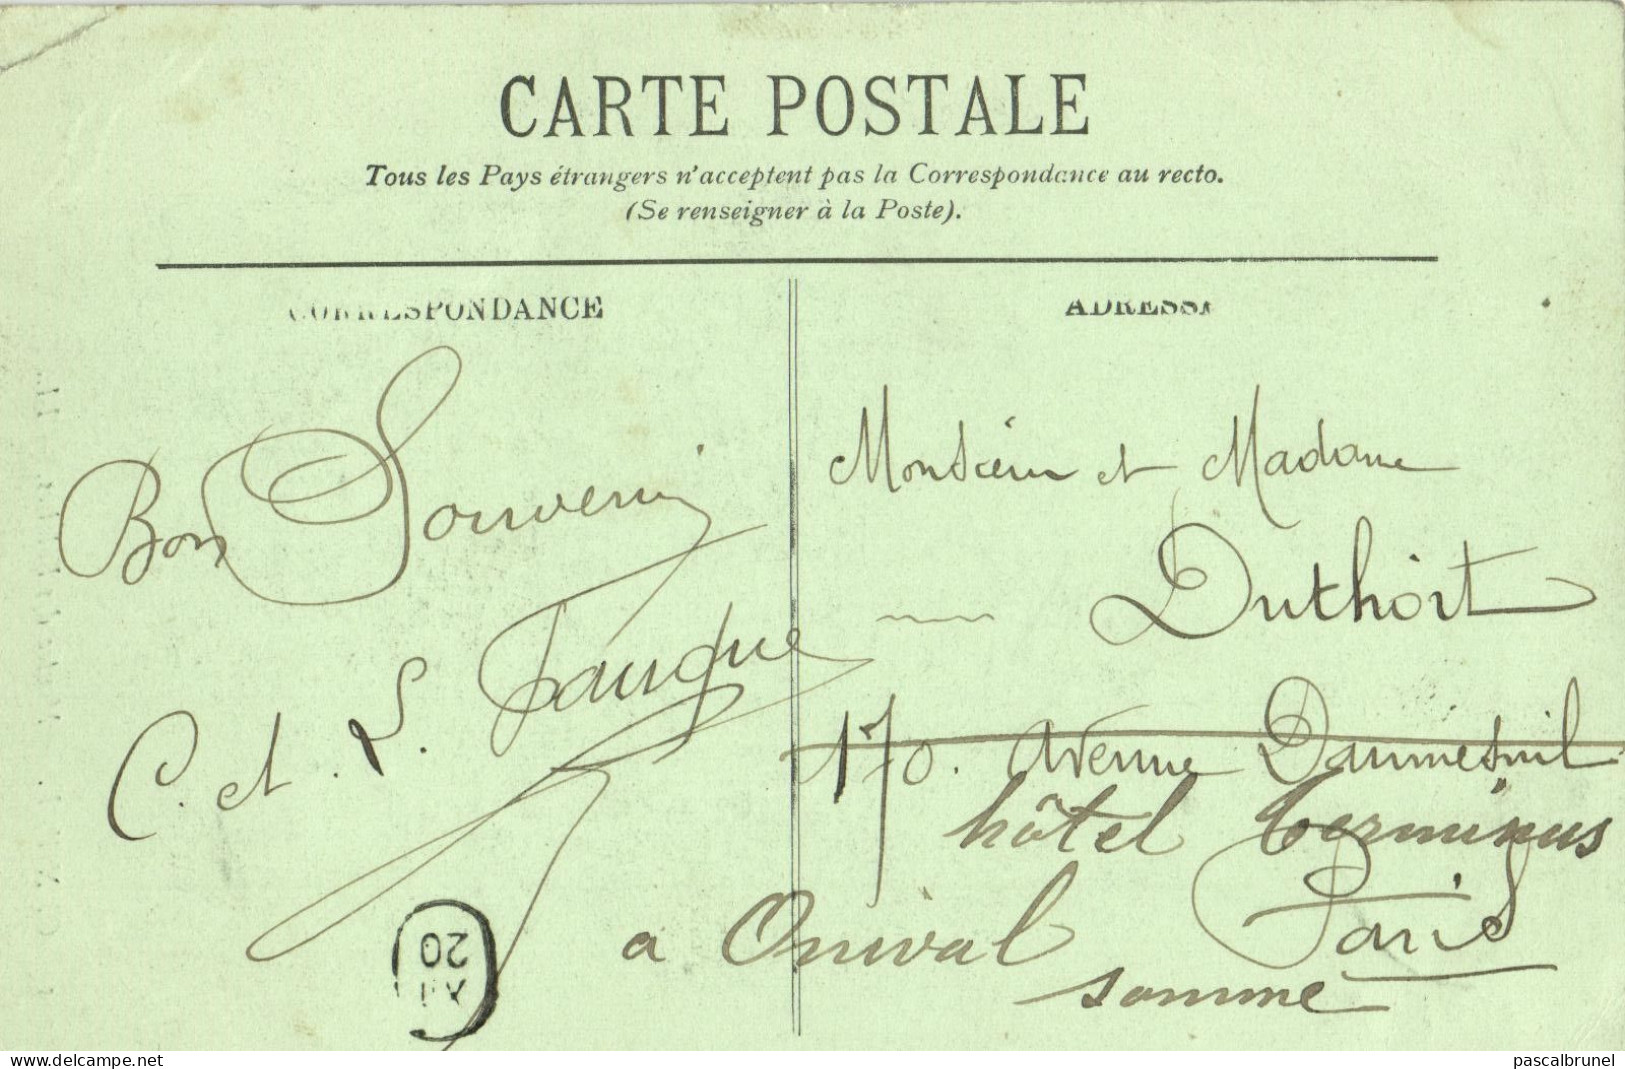 CARTE POSTALE
Tous les Pays étrangers n'acceptent pas la Correspondance au recto.
(Se renseigner à la Poste).
CORRESPONDANCE
Bon Souvenir
C. et L. Fauque
ADRESSE
Monsieur et Madame
Duthoit
170. Avenue Daumesnil
hôtel terminus
Paris
a Onival
somme
20
www.delcampe.net
pascalbrunel